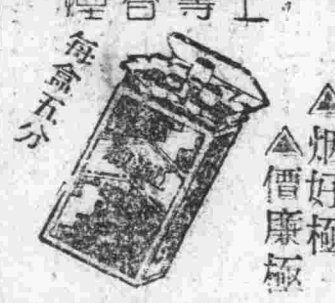 上等香煙
▲烟好極
▲價廉極
每盒五分